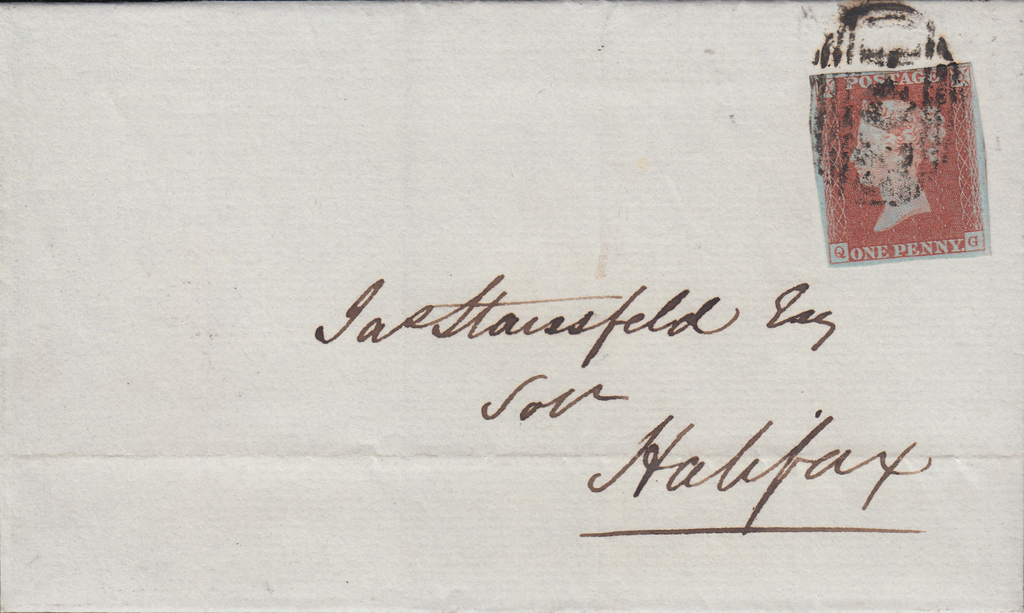 POSTAGE
Q ONE PENNY. G
Jas Stansfeld Esq
Solr
Halifax